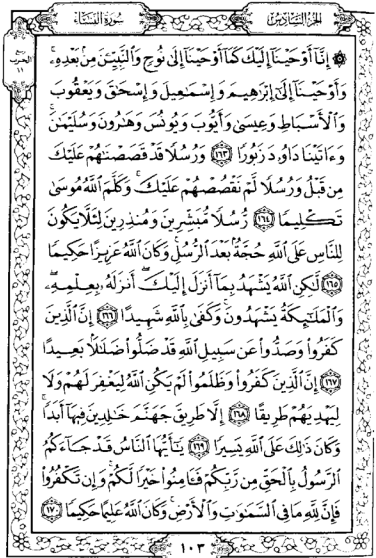 الجزء السادس
سورة النساء
۞ إِنَّآ أَوْحَيْنَآ إِلَيْكَ كَمَآ أَوْحَيْنَآ إِلَىٰ نُوحٍ وَٱلنَّبِيِّـۧنَ مِنۢ بَعْدِهِۦۚ
وَأَوْحَيْنَآ إِلَىٰٓ إِبْرَٰهِيمَ وَإِسْمَٰعِيلَ وَإِسْحَٰقَ وَيَعْقُوبَ
وَٱلْأَسْبَاطِ وَعِيسَىٰ وَأَيُّوبَ وَيُونُسَ وَهَٰرُونَ وَسُلَيْمَٰنَۚ
وَءَاتَيْنَا دَاوُۥدَ زَبُورًا ١٦٣ وَرُسُلًا قَدْ قَصَصْنَٰهُمْ عَلَيْكَ
مِن قَبْلُ وَرُسُلًا لَّمْ نَقْصُصْهُمْ عَلَيْكَۚ وَكَلَّمَ ٱللَّهُ مُوسَىٰ
تَكْلِيمًا ١٦٤ رُّسُلًا مُّبَشِّرِينَ وَمُنذِرِينَ لِئَلَّا يَكُونَ
لِلنَّاسِ عَلَى ٱللَّهِ حُجَّةٌۢ بَعْدَ ٱلرُّسُلِۚ وَكَانَ ٱللَّهُ عَزِيزًا حَكِيمًا
١٦٥ لَّٰكِنِ ٱللَّهُ يَشْهَدُ بِمَآ أَنزَلَ إِلَيْكَۖ أَنزَلَهُۥ بِعِلْمِهِۦۖ
وَٱلْمَلَٰٓئِكَةُ يَشْهَدُونَۚ وَكَفَىٰ بِٱللَّهِ شَهِيدًا ١٦٦ إِنَّ ٱلَّذِينَ
كَفَرُوا۟ وَصَدُّوا۟ عَن سَبِيلِ ٱللَّهِ قَدْ ضَلُّوا۟ ضَلَٰلًۢا بَعِيدًا
١٦٧ إِنَّ ٱلَّذِينَ كَفَرُوا۟ وَظَلَمُوا۟ لَمْ يَكُنِ ٱللَّهُ لِيَغْفِرَ لَهُمْ وَلَا
لِيَهْدِيَهُمْ طَرِيقًا ١٦٨ إِلَّا طَرِيقَ جَهَنَّمَ خَٰلِدِينَ فِيهَآ أَبَدًاۚ
وَكَانَ ذَٰلِكَ عَلَى ٱللَّهِ يَسِيرًا ١٦٩ يَٰٓأَيُّهَا ٱلنَّاسُ قَدْ جَآءَكُمُ
ٱلرَّسُولُ بِٱلْحَقِّ مِن رَّبِّكُمْ فَـَٔامِنُوا۟ خَيْرًا لَّكُمْۚ وَإِن تَكْفُرُوا۟
فَإِنَّ لِلَّهِ مَا فِى ٱلسَّمَٰوَٰتِ وَٱلْأَرْضِۚ وَكَانَ ٱللَّهُ عَلِيمًا حَكِيمًا ١٧٠
١٠٣